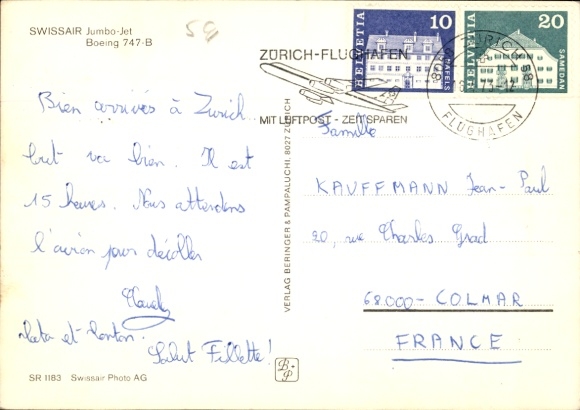 SWISSAIR Jumbo-Jet
Boeing 747-B
59
HELVETIA 10
HELVETIA 20 SAMEDAN
ZÜRICH-FLUGHAFEN
MIT LUFTPOST - ZEIT SPAREN
FLUGHAFEN
Bien arrivés à Zurich.
tout va bien. Il est
15 heures. Nous attendons
l'avion pour décoller
Salut Fillette!
Famille
KAUFFMANN Jean-Paul
20, rue Charles Grad
68000 - COLMAR
FRANCE
VERLAG BERINGER & PAMPALUCHI, 8027 ZÜRICH
B+P
SR 1183 Swissair Photo AG